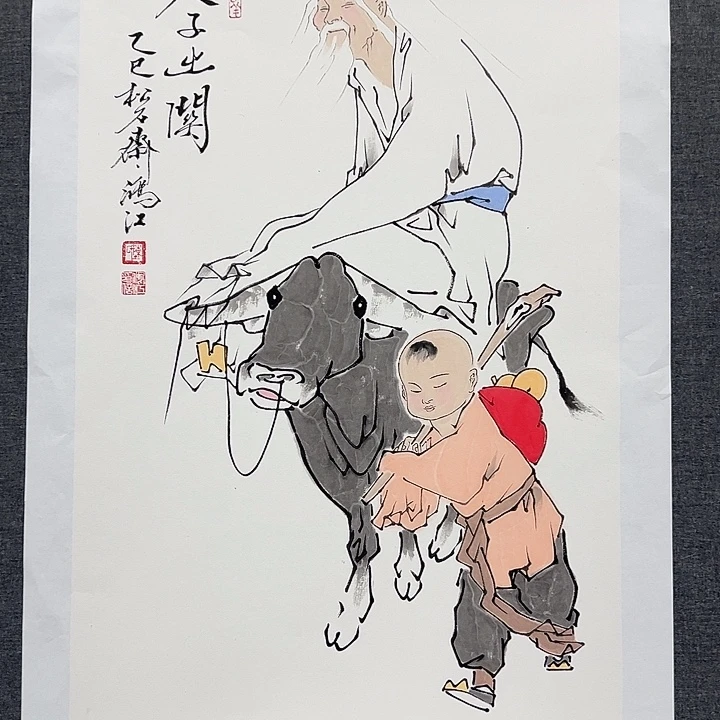 子出關
乙巳松石齋鴻江